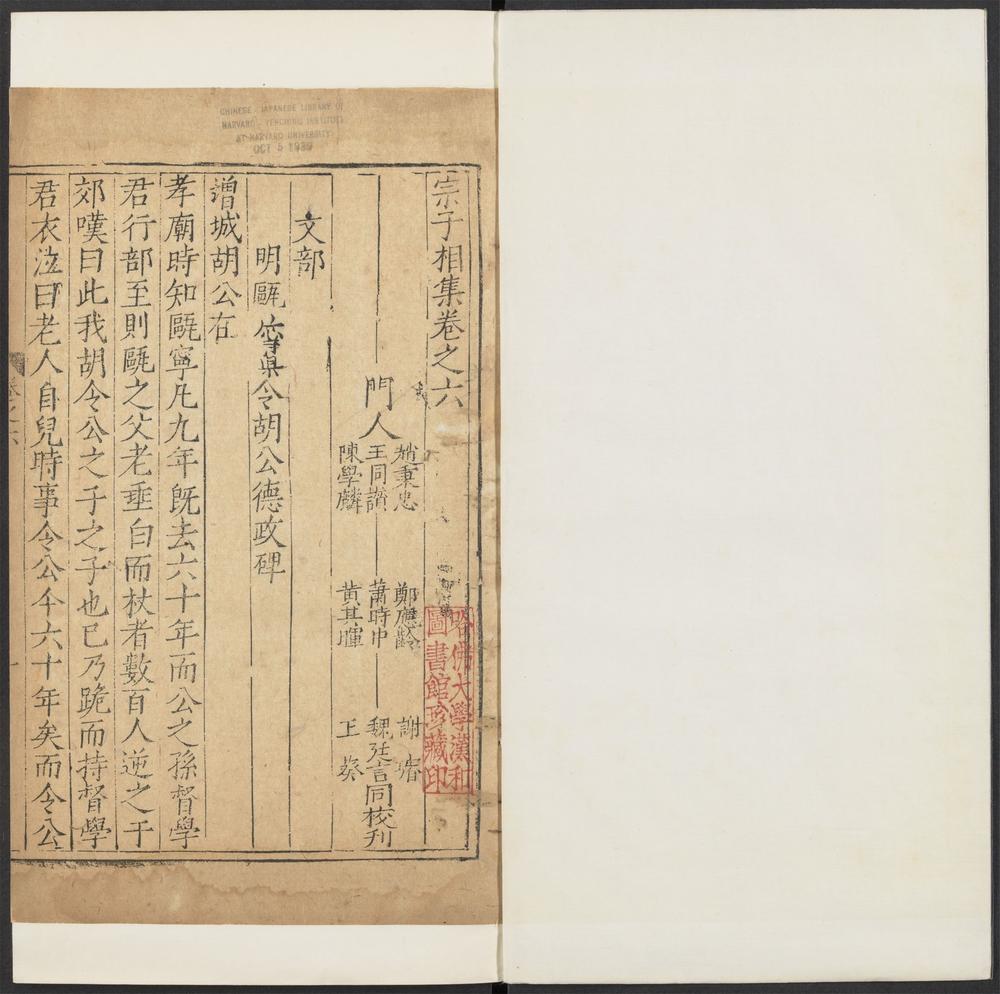 宗子相集卷之六
門人
趙秉忠
王同讃
陳學麟
鄭應齡
蕭時中
黃其暉
謝
魏廷言
王葵
同校刋
文部
明甌寧眞令胡公德政碑
増城胡公在
孝廟時知甌寧凡九年旣去六十年而公之孫督學
君行部至則甌之父老垂白而杖者數百人逆之于
郊嘆曰此我胡令公之子之子也已乃跪而持督學
君衣泣曰老人自兒時事令公今六十年矣而令公
哈佛大學漢和
圖書館珍藏印
CHINESE - JAPANESE LIBRARY OF
HARVARD - YENCHING INSTITUTE
AT HARVARD UNIVERSITY
OCT 5 1939